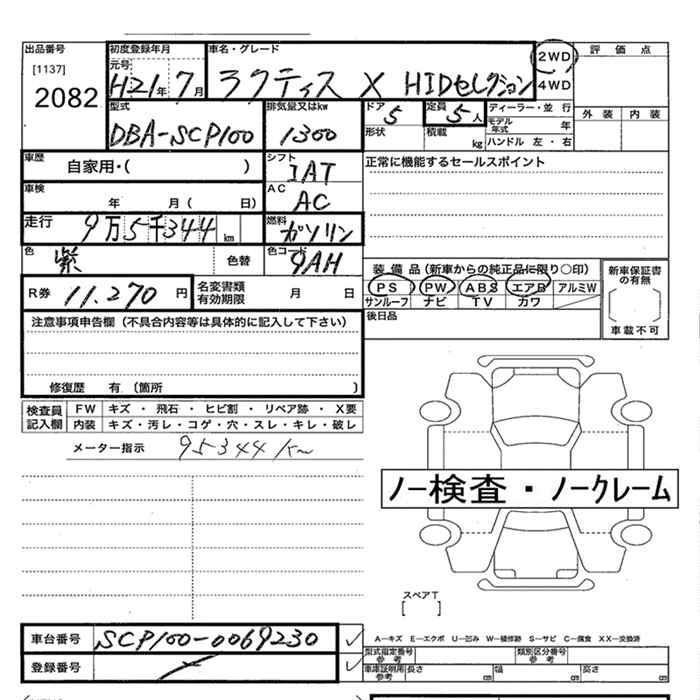 出品番号 初度登録年月 車名・グレード 2WD 評価点
[1137] 元号
2082 H21年 7月 ラクティス X HIDセレクション 4WD
型式 排気量又はkw ドア 定員 ディーラー・並行 外装 内装
DBA-SCP100 1300 5 5人 モデル年式 年
形状 積載 kg ハンドル 左・右
車歴 自家用・( ) シフト IAT 正常に機能するセールスポイント
車検 年 月( 日) AC AC
走行 9万5千344km 燃料 ガソリン
色 紫 色替 色コード 9AH 装備品(新車からの純正品に限り○印) 新車保証書の有無
R券 11.270円 名変書類有効期限 月 日 PS PW ABS エアB アルミW
サンルーフ ナビ TV カワ
注意事項申告欄(不具合内容等は具体的に記入して下さい) 後日品 車載不可
修復歴 有(箇所 )
検査員記入欄 FW キズ・飛石・ヒビ割・リペア跡・X要
内装 キズ・汚レ・コゲ・穴・スレ・キレ・破レ
メーター指示 95344km
ノー検査・ノークレーム
スペアT
[ ]
車台番号 SCP100-0069230
A―キズ E―エクボ U―凹み W―補修跡 S―サビ C―腐食 XX―交換済
型式指定番号 参考 類別区分番号 参考
登録番号 車庫証明用 参考 長さ cm 幅 cm 高さ cm